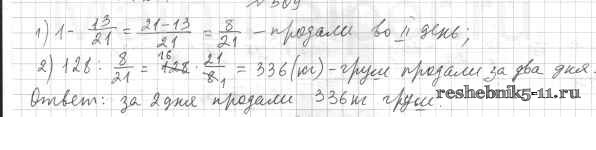 № 509
1) 1 - 13/21 = 21-13/21 = 8/21 - продали во II день;
2) 128 : 8/21 = 16 128 · 21/8 1 = 336 (кг) - груш продали за два дня.
Ответ: за 2 дня продали 336 кг груш.
reshebnik5-11.ru